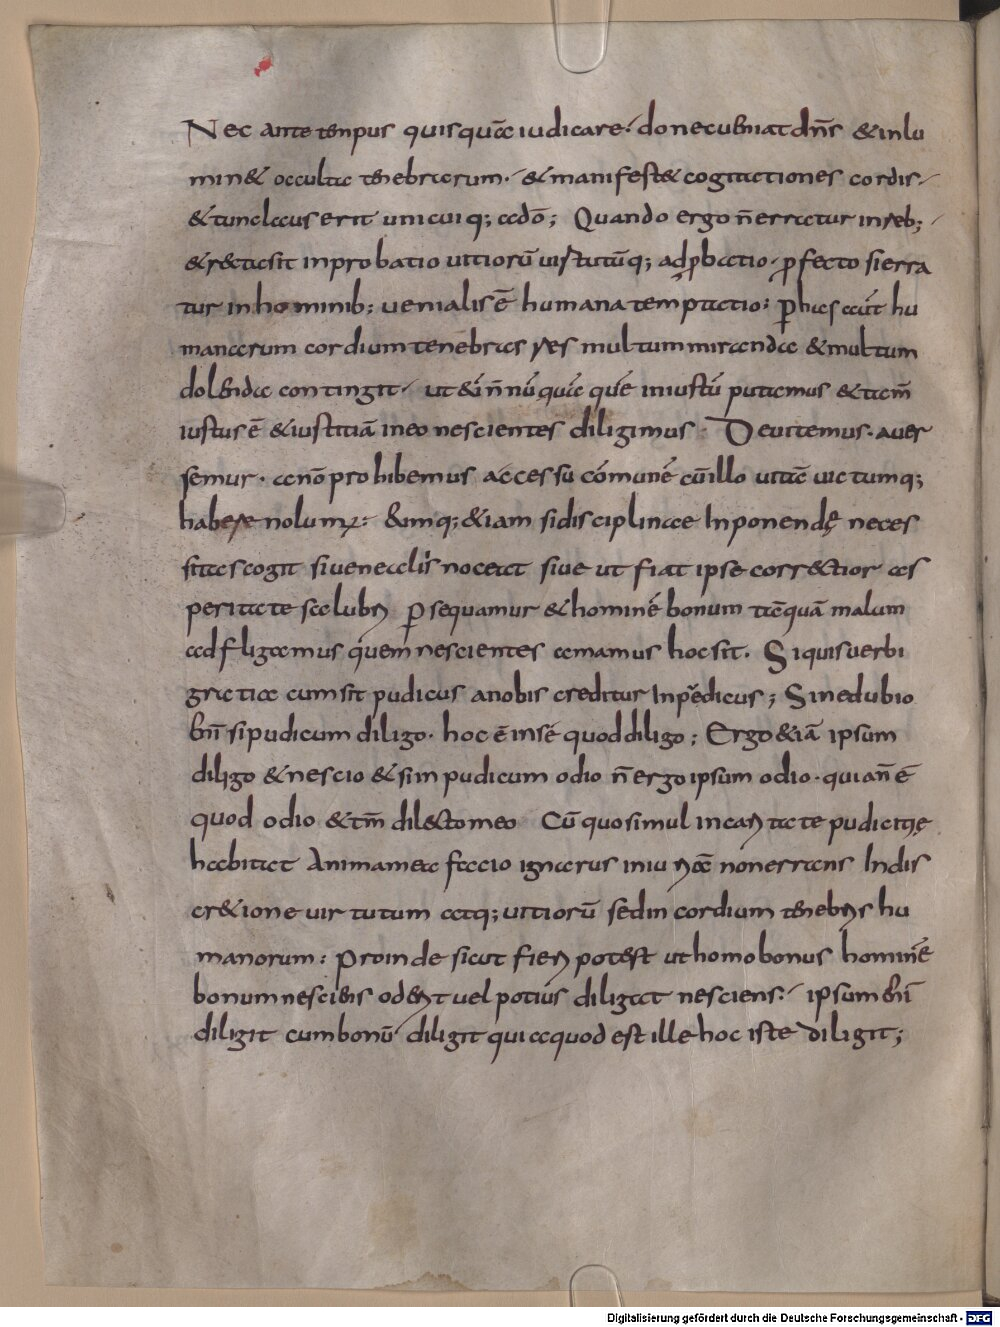 Nec ante tempus quisquā iudicare; donec ueniat dn̄s & inlu
min& occulta tenebrarum. & manifest& cogitationes cordis.
& tunc laus erit unicuiq; a dō; Quando ergo n̄ erratur in reb;
& recta sit inprobatio uitiorū uirtutūq; adꝓbatio. ꝓfecto si erra
tur in hominib; uenialis ē humana temptatio; ꝑ has aūt hu
manarum cordium tenebras res multum miranda & multum
dolenda contingit. ut eū nn̄ūquā quē iniustū putamus & tam̄
iustus ē & iustitiā in eo nescientes diligimus. Deuitemus. auer
semur. a nō prohibemus accessu cōmunē cū illo uitā uictumq;
habere nolum; Eumq; & iam si disciplinae Inponendę neces
sitas cogit siue ne aliis noceat siue ut fiat ipse correctior as
peritate salubri ꝑsequamur & hominē bonum tāquā malum
adfligamus quem nescientes amamus hoc sit. Si quis uerbi
gratia cum sit pudicus a nobis creditur Inpudicus; Sine dubio
en̄ si pudicum diligo. hoc ē insē quod diligo; Ergo & iā ipsum
diligo & nescio & si inpudicum odio n̄ ergo ipsum odio. quia n̄ ē
quod odio & tm̄ dilecto meo Cū quo simul in caritate pudicitię
habitat Anima mea facio ignarus iniuriā non errans In dis
cr&ione uirtutum atq; uitiorū sed in cordium tenebris hu
manorum; Proinde sicut fieri potest ut homo bonus hominē
bonum nesciens oderit uel potius diligat nesciens; ipsum eni
diligit cum bonū diligit quia quod est ille hoc iste diligit;
Digitalisierung gefördert durch die Deutsche Forschungsgemeinschaft - DFG